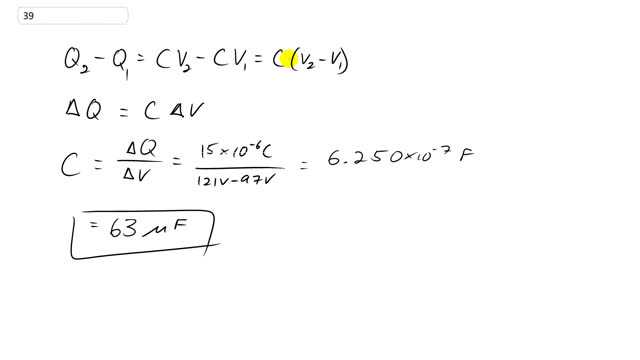 39
Q₂ - Q₁ = CV₂ - CV₁ = C(V₂ - V₁)
ΔQ = C ΔV
C = ΔQ/ΔV = 15×10⁻⁶C / 121V-97V = 6.250×10⁻⁷ F
= 63 μF